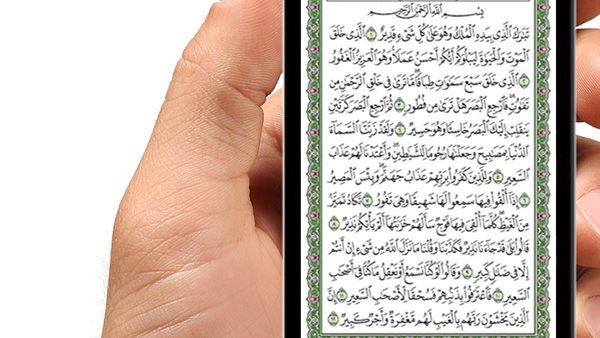 بِسْمِ ٱللَّهِ ٱلرَّحْمَٰنِ ٱلرَّحِيمِ
تَبَٰرَكَ ٱلَّذِى بِيَدِهِ ٱلْمُلْكُ وَهُوَ عَلَىٰ كُلِّ شَىْءٍ قَدِيرٌ ١ ٱلَّذِى خَلَقَ
ٱلْمَوْتَ وَٱلْحَيَوٰةَ لِيَبْلُوَكُمْ أَيُّكُمْ أَحْسَنُ عَمَلًا وَهُوَ ٱلْعَزِيزُ ٱلْغَفُورُ
٢ ٱلَّذِى خَلَقَ سَبْعَ سَمَٰوَٰتٍ طِبَاقًا مَّا تَرَىٰ فِى خَلْقِ ٱلرَّحْمَٰنِ مِن
تَفَٰوُتٍ فَٱرْجِعِ ٱلْبَصَرَ هَلْ تَرَىٰ مِن فُطُورٍ ٣ ثُمَّ ٱرْجِعِ ٱلْبَصَرَ كَرَّتَيْنِ
يَنقَلِبْ إِلَيْكَ ٱلْبَصَرُ خَاسِئًا وَهُوَ حَسِيرٌ ٤ وَلَقَدْ زَيَّنَّا ٱلسَّمَآءَ
ٱلدُّنْيَا بِمَصَٰبِيحَ وَجَعَلْنَٰهَا رُجُومًا لِّلشَّيَٰطِينِ وَأَعْتَدْنَا لَهُمْ عَذَابَ
ٱلسَّعِيرِ ٥ وَلِلَّذِينَ كَفَرُوا۟ بِرَبِّهِمْ عَذَابُ جَهَنَّمَ وَبِئْسَ ٱلْمَصِيرُ
٦ إِذَآ أُلْقُوا۟ فِيهَا سَمِعُوا۟ لَهَا شَهِيقًا وَهِىَ تَفُورُ ٧ تَكَادُ تَمَيَّزُ
مِنَ ٱلْغَيْظِ كُلَّمَآ أُلْقِىَ فِيهَا فَوْجٌ سَأَلَهُمْ خَزَنَتُهَآ أَلَمْ يَأْتِكُمْ نَذِيرٌ ٨
قَالُوا۟ بَلَىٰ قَدْ جَآءَنَا نَذِيرٌ فَكَذَّبْنَا وَقُلْنَا مَا نَزَّلَ ٱللَّهُ مِن شَىْءٍ إِنْ أَنتُمْ
إِلَّا فِى ضَلَٰلٍ كَبِيرٍ ٩ وَقَالُوا۟ لَوْ كُنَّا نَسْمَعُ أَوْ نَعْقِلُ مَا كُنَّا فِىٓ أَصْحَٰبِ
ٱلسَّعِيرِ ١٠ فَٱعْتَرَفُوا۟ بِذَنۢبِهِمْ فَسُحْقًا لِّأَصْحَٰبِ ٱلسَّعِيرِ ١١ إِنَّ
ٱلَّذِينَ يَخْشَوْنَ رَبَّهُم بِٱلْغَيْبِ لَهُم مَّغْفِرَةٌ وَأَجْرٌ كَبِيرٌ ١٢